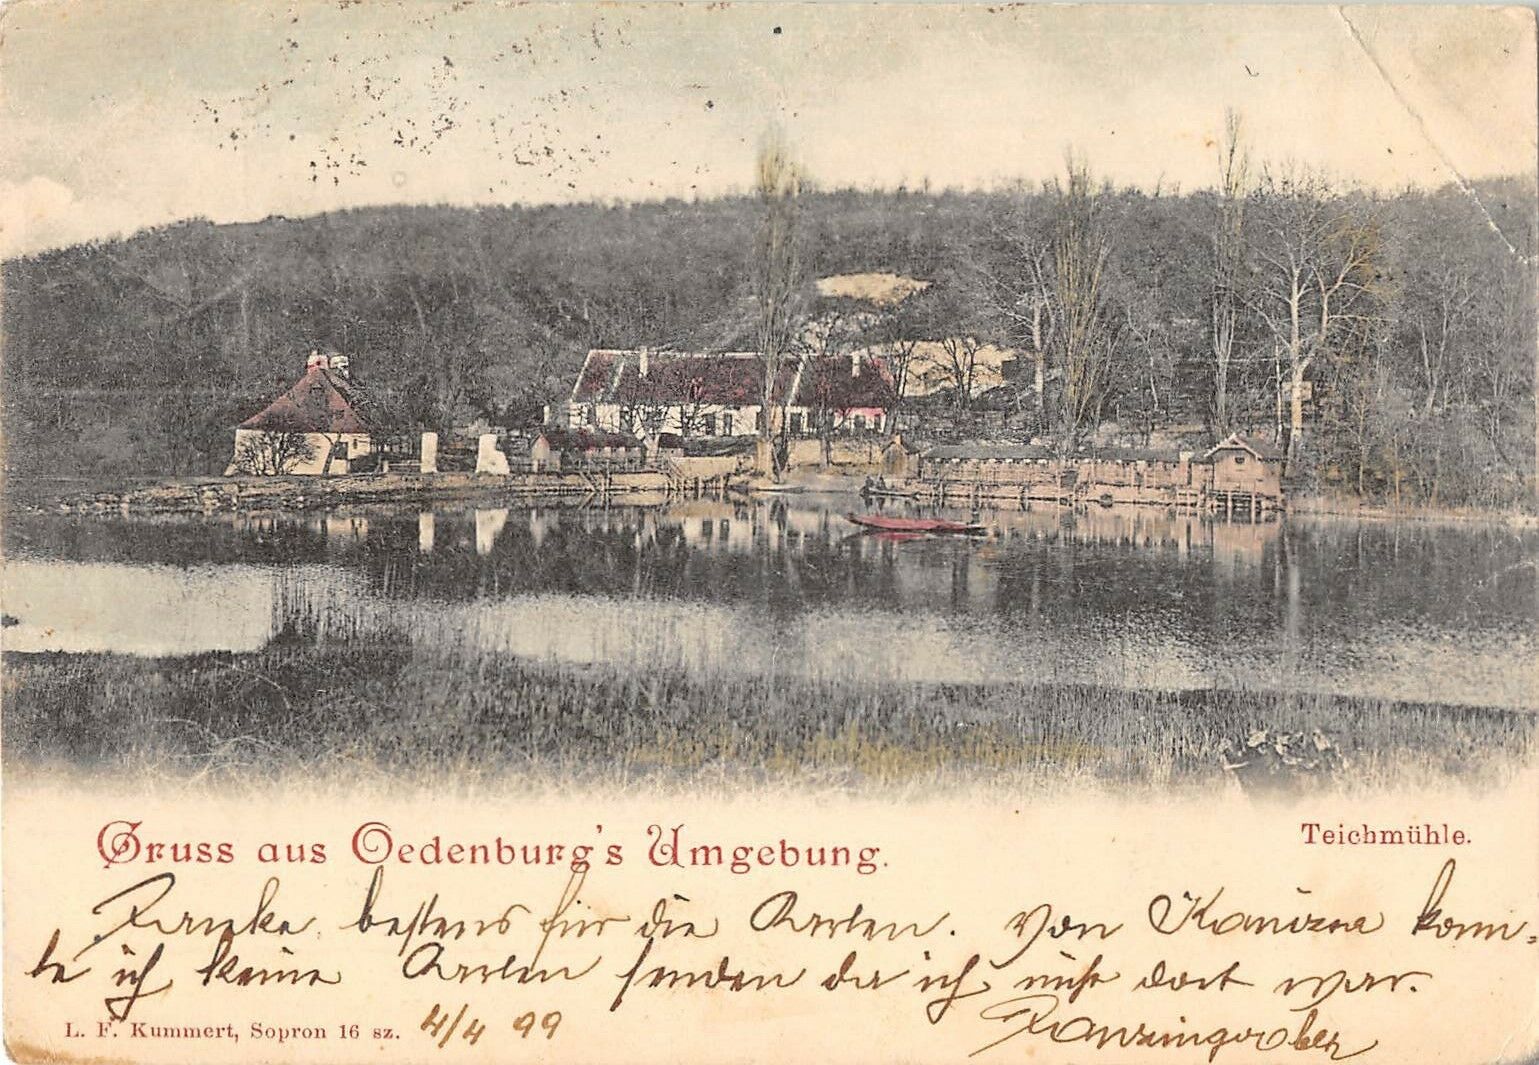 Gruss aus Oedenburg's Umgebung.
Teichmühle.
Danke bestens für die Karten. Von Kanizsa konn-
te ich keine Karten senden da ich nicht dort war.
L. F. Kummert, Sopron 16 sz.
4/4 99